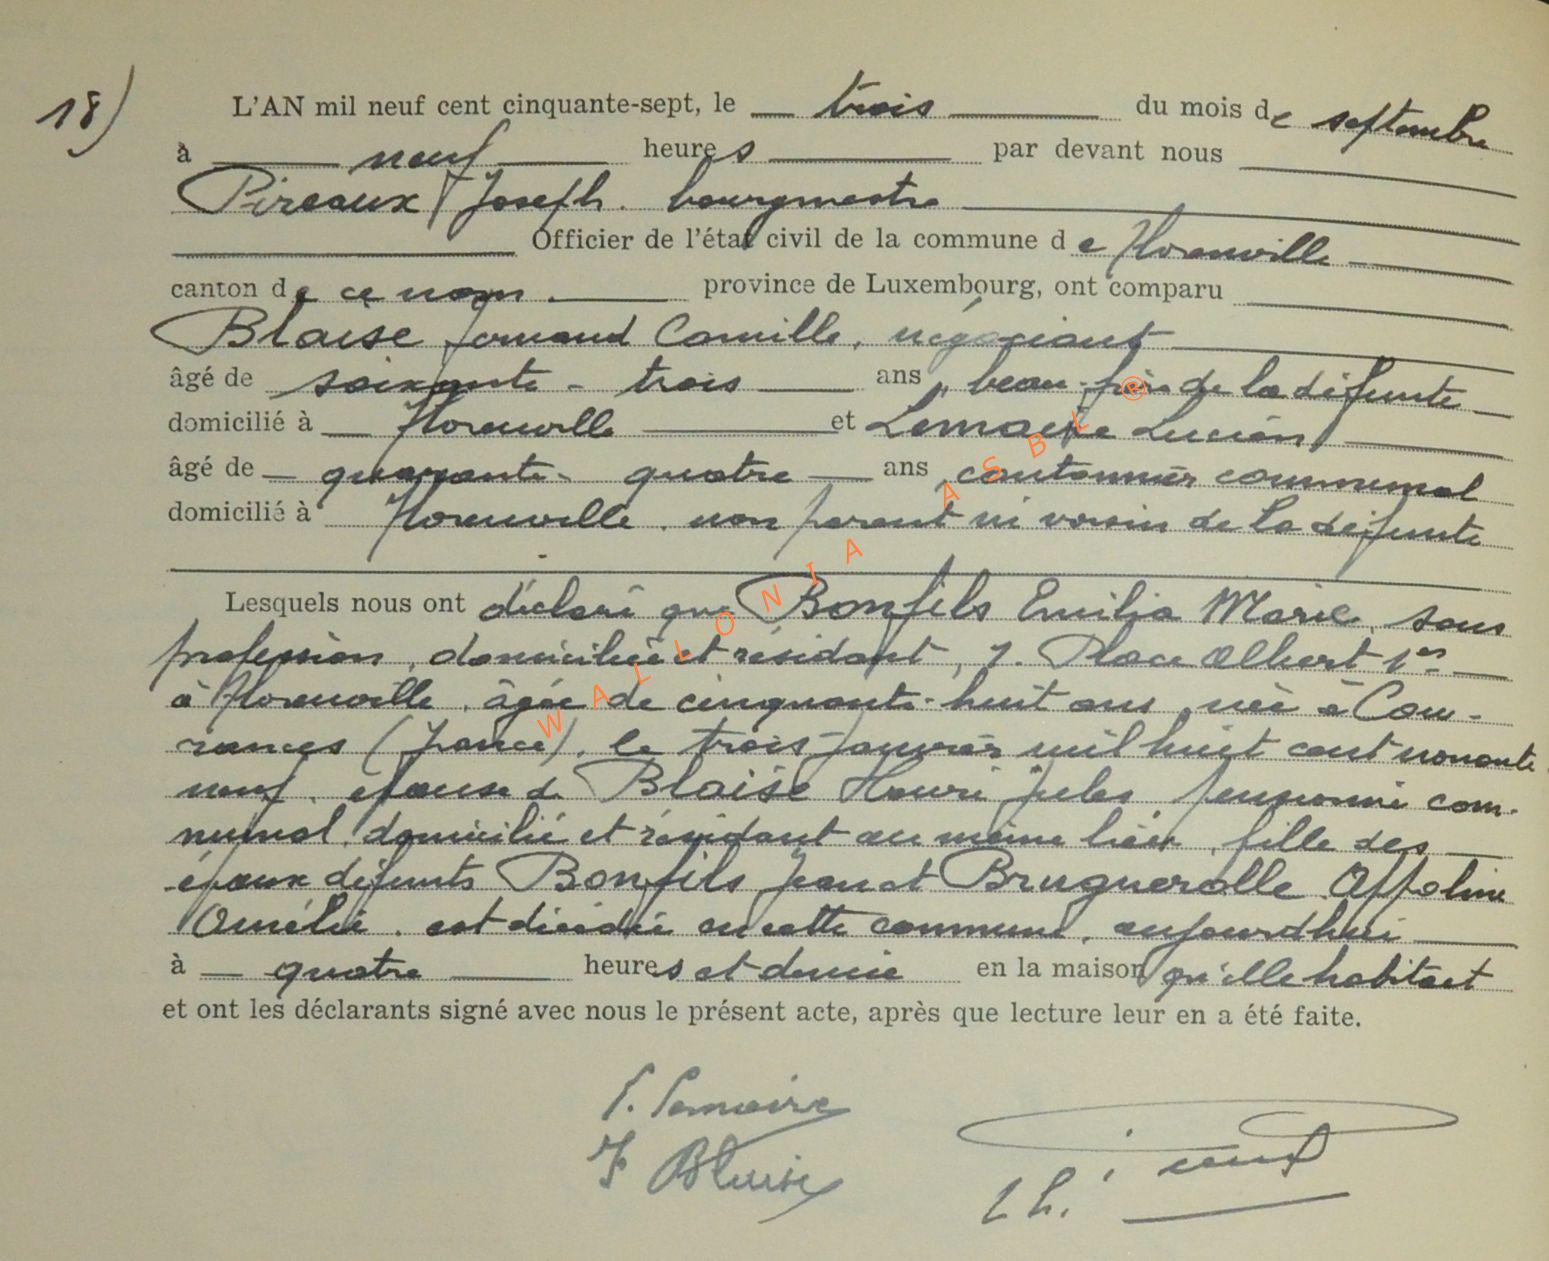 18)
L'AN mil neuf cent cinquante-sept, le trois du mois de septembre
à neuf heures par devant nous
Pireaux Joseph. bourgmestre
Officier de l'état civil de la commune de Florenville
canton de ce nom. province de Luxembourg, ont comparu
Blaise Fernand Camille, négociant
âgé de soixante-trois ans, beau-frère de la défunte
domicilié à Florenville et Lemaire Lucien
âgé de quarante-quatre ans, cantonnier communal
domicilié à Florenville. non parent ni voisin de la défunte
Lesquels nous ont déclaré que Bonfils Emilia Marie, sans
profession, domiciliée et résidant, 7. Place Albert 1er
à Florenville, âgée de cinquante-huit ans, née à Cou-
rances (France), le trois janvier mil huit cent nonante
neuf. épouse de Blaise Henri Jules pensionné com-
munal, domicilié et résidant au même lieu, fille des
époux défunts Bonfils Jean et Bruguerolle Appoline
Amélie. est décédée en cette commune, aujourdhui
à quatre heures et demie en la maison qu'elle habitait
et ont les déclarants signé avec nous le présent acte, après que lecture leur en a été faite.
L. Lemaire
F Blaise
WALLONIA ASBL ®